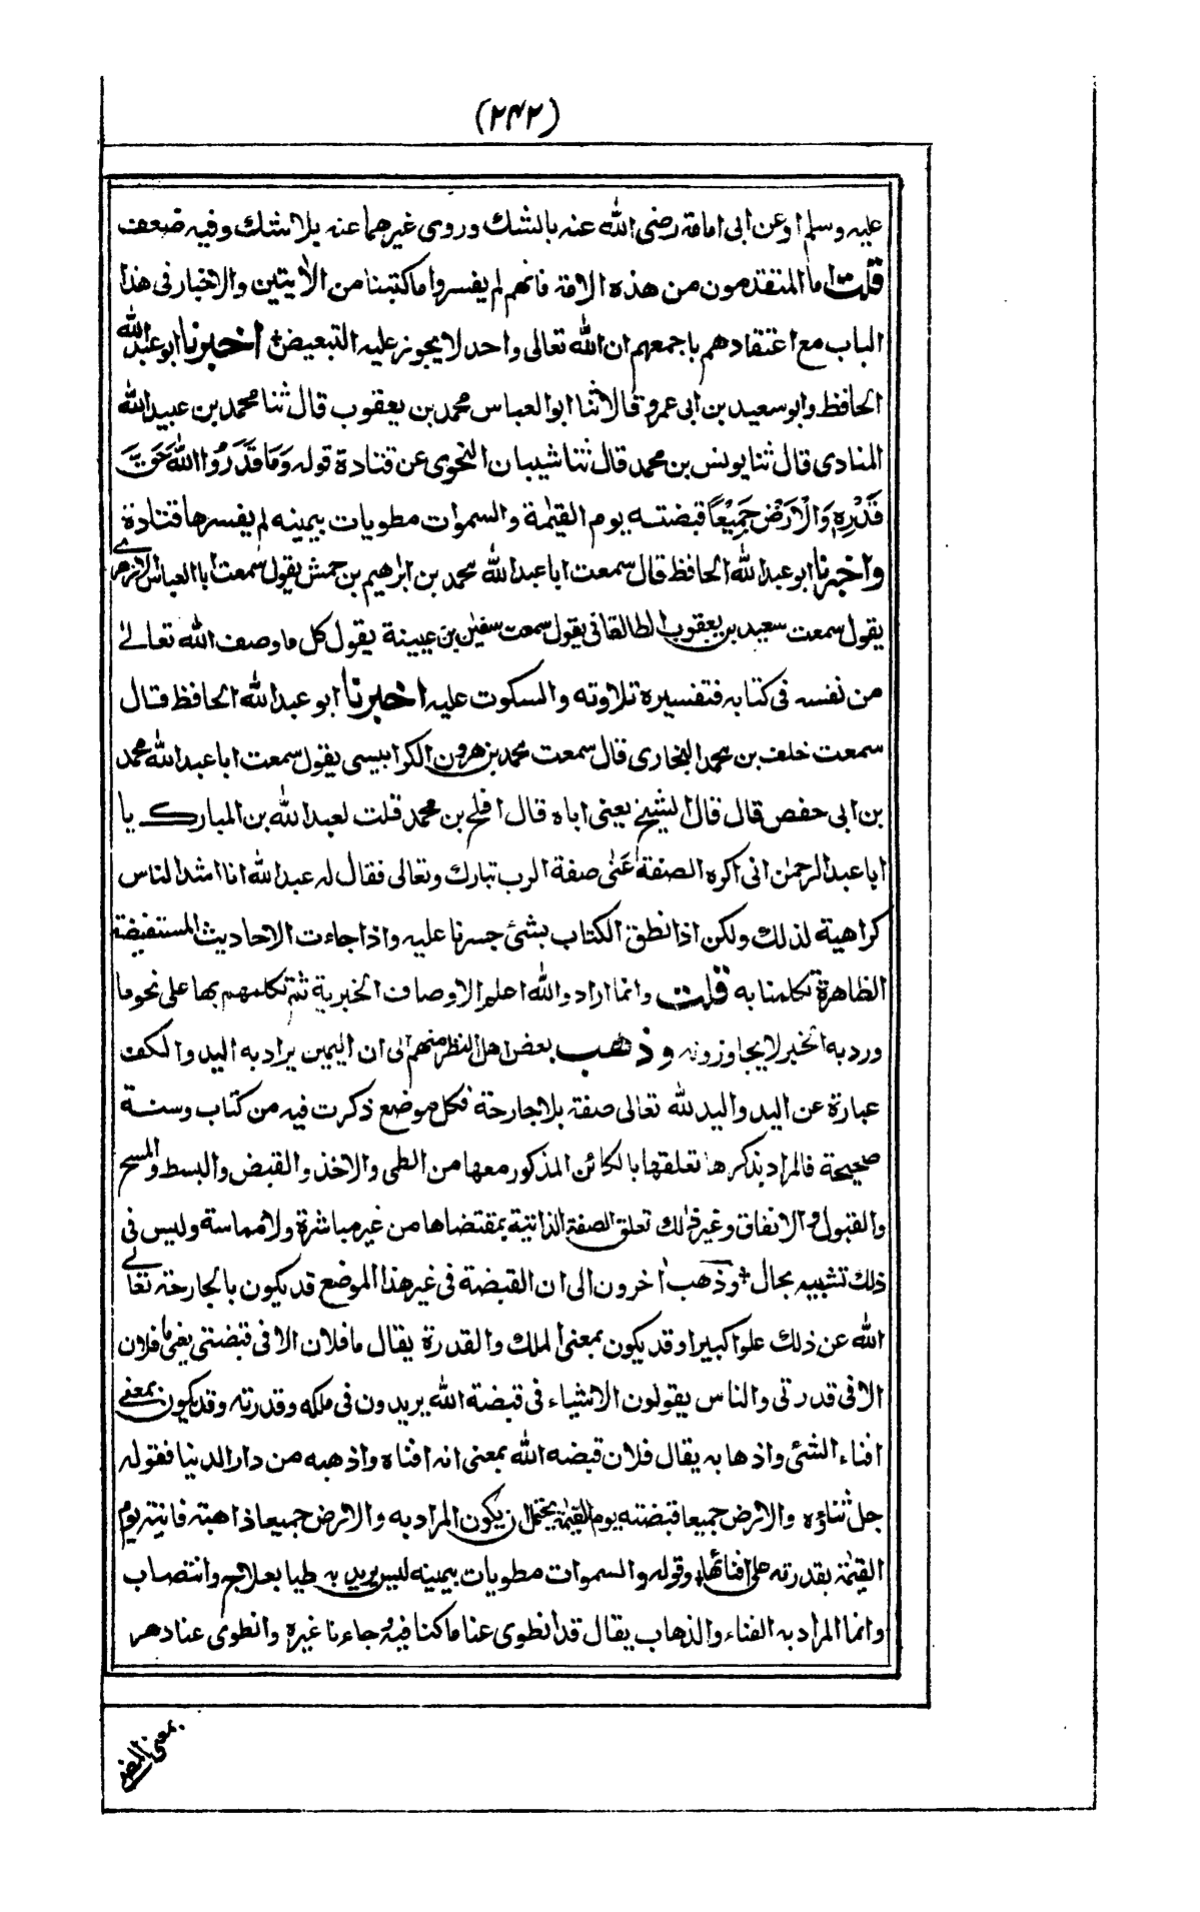 (۲۴۲)
عليه وسلم او عن ابى امامة رضى الله عنه بالشك وروى غيرهما عنه بلا شك وفيه ضعف
قلت اما المتقدمون من هذه الامة فانهم لم يفسروا ما كتبنا من الاٰيتين والاخبار فى هذا
الباب مع اعتقادهم باجمعهم ان الله تعالى واحد لا يجوز عليه التبعيض اخبرنا ابو عبد الله
الحافظ وابو سعيد بن ابى عمرو قالا ثنا ابو العباس محمد بن يعقوب قال ثنا محمد بن عبيد الله
المنادى قال ثنا يونس بن محمد قال ثنا شيبان النحوى عن قتادة قوله وَمَا قَدَرُوا اللهَ حَقَّ
قَدْرِهٖ وَالْاَرْضُ جَمِيْعًا قبضته يوم القيٰمة والسمٰوات مطويات بيمينه لم يفسرها قتادة
واخبرنا ابو عبد الله الحافظ قال سمعت ابا عبد الله محمد بن ابراهيم بن حمش يقول سمعت ابا العباس الازهرى
يقول سمعت سعيد بن يعقوب الطالقانى يقول سمعت سفيٰن بن عيينة يقول كل ما وصف الله تعالىٰ
من نفسه فى كتابه فتفسيره تلاوته والسكوت عليه اخبرنا ابو عبد الله الحافظ قال
سمعت خلف بن محمد البخارى قال سمعت محمد بن هرون الكرابيسى يقول سمعت ابا عبد الله محمد
بن ابى حفص قال قال الشيخ يعنى اباه قال افلح بن محمد قلت لعبد الله بن المبارك يا
ابا عبد الرحمٰن انى اكره الصفة عَنٰى صفة الرب تبارك وتعالى فقال له عبد الله انا اشد الناس
كراهية لذلك ولكن اذا نطق الكتاب بشئ جسرنا عليه واذا جاءت الاحاديث المستفيضة
الظاهرة تكلمنا به قلت وانما اراد والله اعلم الاوصاف الخبرية ثم تكلمهم بها على نحو ما
ورد به الخبر لا يجاوزونه وذهب بعض اهل النظر منهم الى ان اليمين يراد به اليد والكف
عبارة عن اليد واليد لله تعالى صفة بلا جارحة فكل موضع ذكرت فيه من كتاب وسنة
صحيحة فالمراد بذكرها تعلقها بالكائن المذكور معها من الطى والاخذ والقبض والبسط والمسح
والقبول والانفاق وغير ذلك تعلق الصفة الذاتية بمقتضاها من غير مباشرة ولا مماسة وليس فى
ذلك تشبيه بحال وذهب اٰخرون الى ان القبضة فى غير هذا الموضع قد يكون بالجارحة تعالى
الله عن ذلك علوا كبيرا وقد يكون بمعنى الملك والقدرة يقال ما فلان الا فى قبضتى يعنى ما فلان
الا فى قدرتى والناس يقولون الاشياء فى قبضة الله يريدون فى ملكه وقدرته وقد يكون بمعنى
افناء الشئ واذهابه يقال فلان قبضه الله بمعنى انه افناه واذهبه من دار الدنيا فقوله
جل ثناؤه والارض جميعا قبضته يوم القيٰمة يحتمل ان يكون المراد به والارض جميعا ذاهبة فانية يوم
القيٰمة بقدرته على افنائها وقوله والسموات مطويات بيمينه ليس يريد به طيا بعلاج وانتصاب
وانما المراد به الفناء والذهاب يقال قد انطوى عنا ما كنا فيه وجاءنا غيره وانطوى عنا دهر
بمعنى المضى